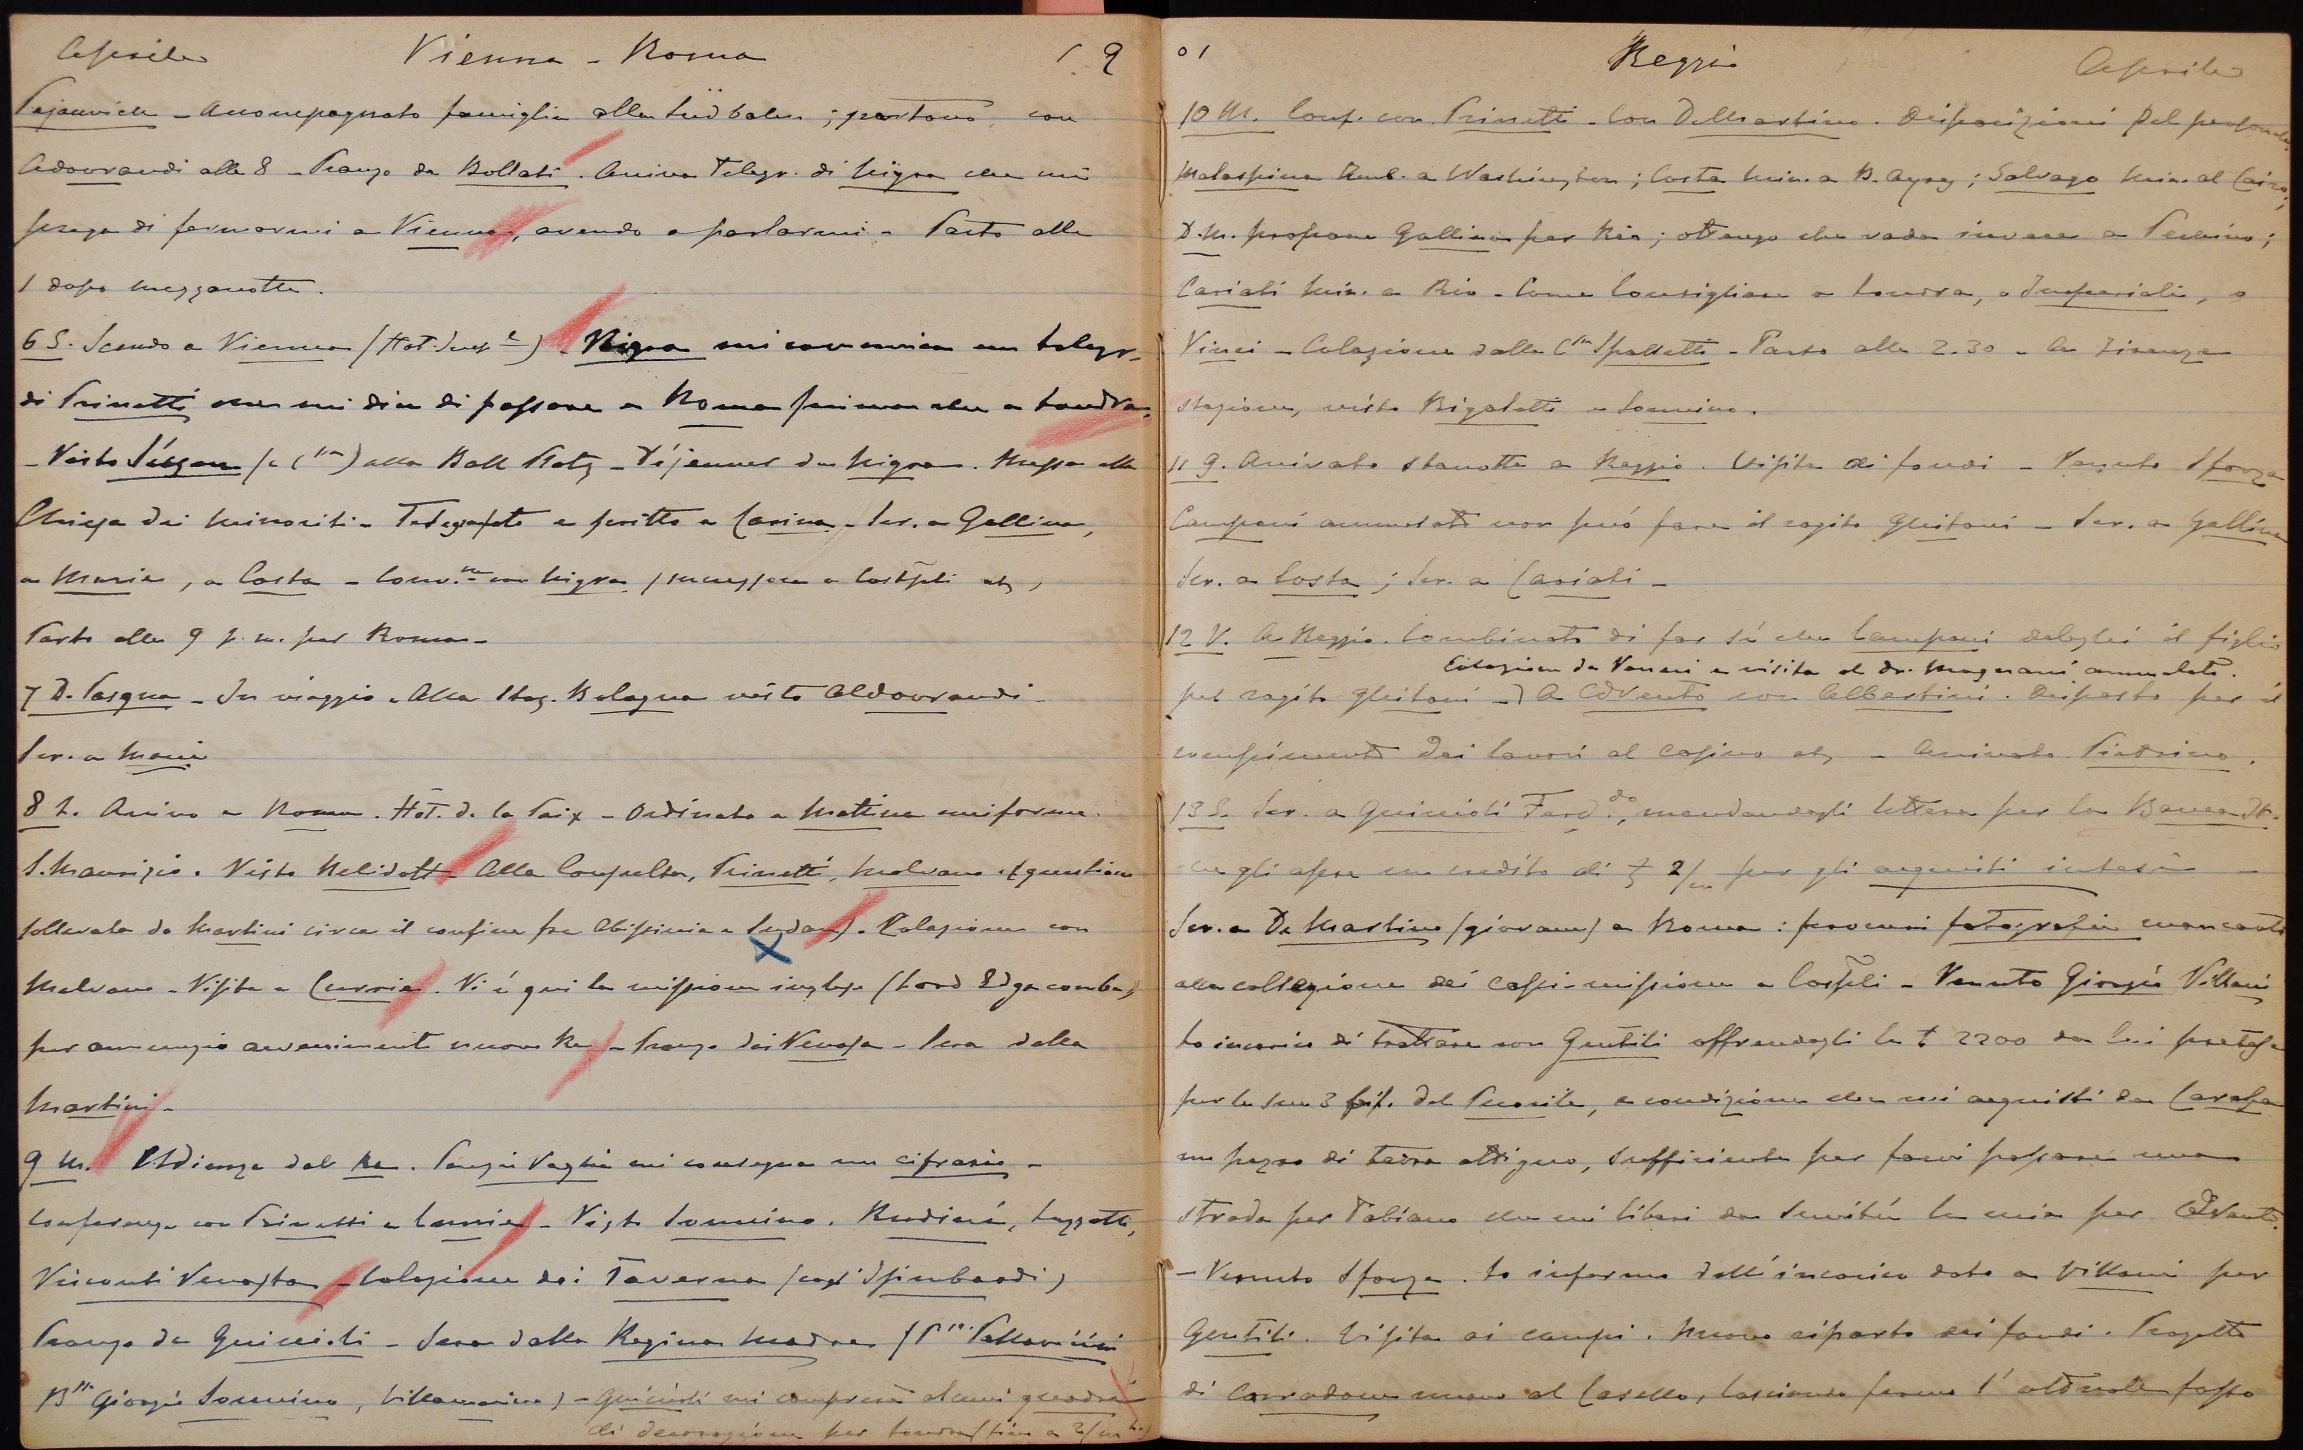 Aprile Vienna - Roma 19
Pajanvich - Accompagnato famiglia alla Südbahn ; partono, con
Aldovrandi alle 8 - Pranzo da Bollati. Arriva Telegr. di Nigra che mi
prega di fermarmi a Vienna, avendo a parlarmi - Parto alle
1 dopo mezzanotte.
6 S. Scendo a Vienna (Hôt. Imp.l) - Nigra mi comunica un telegr.
di Prinetti che mi dice di passare a Roma prima che a Londra.
- Visto (e Css) alla Ball Platz - Déjeuner da Nigra. Messa alla
Chiesa dei Minoriti - Telegrafato e scritto a Carina - Scr. a Gallina,
a Maria, a Costa - Conv.ne con Nigra (successore a Costpli etc)
Parto alle 9 p.m. per Roma -
7 D. Pasqua - In viaggio - Alla Staz. Bologna visto Aldovrandi -
Scr. a
8 L. Arrivo a Roma. Hôt. de la Paix - Ordinato a Mattina uniforme
S. Maurizio. Visto Nelidoff - Alla Consulta, Prinetti, Malvano (questione
sollevata da Martini circa il confine fra Abissinia e Sudan). Colazione con
Malvano - Visita a Currie. Vi è qui la missione inglese (Lord Edgcombe)
per annunzio avvenimento nuovo Re - Pranzo dai Venosa - Sera dalla
Martini -
9 M. Udienza dal Re. Ponzio Vaglia mi consegna un cifrario -
Conferenza con Prinetti e Currie - Visto Sonnino. Rudinì, Luzzatti,
Visconti Venosta - Colazione dai Taverna (coi Spinbardi)
Pranzo da Guiccioli - Sera dalla Regina Madre (Pssa Pallavicini
Bne Giorgio Sonnino, Villamarina) - Guiccioli mi comprerà alcuni quadri
di decorazione per Londra (fino a 2/m)
01 Reggio Aprile
10 M. Conf. con Prinetti - Con De Martino. Disposizioni del personale.
Malaspina Amb. a Washington ; Costa Min. a B. Ayres ; Salvago Min. al Cairo ;
D.M. propone Gallina per Rio ; ottengo che vada invece a Pechino ;
Cariati Min. a Rio - Come Consigliere a Londra, o Imperiali, o
Vinci - Colazione dalla Cssa Spalletti - Parto alle 2.30 - A Firenze
stazione, visto Rigaletti e Sonnino.
11 G. Arrivato stanotte a Reggio. Visita ai fondi - Venuto Sforza
Campani ammalato non può fare il rogito Ghitoni - Scr. a Gallina
Scr. a Costa ; Scr. a Cariati -
12 V. A Reggio. Combinato di far sì che Campani deleghi il figlio
Colazione da Vanni e visita al dr. Magnani ammalato.
pel rogito Ghitoni - A Cdvento con Albertini. Disposto per il
compimento dei lavori al Casino etc - Arrivato Pietrino.
13 S. Scr. a Guiccioli Ferd.do, mandandogli lettera per la Banca It.
che gli apre un credito di £ 2/m per gli acquisti intesi -
Scr. a De Martino (giovane) a Roma : procuri fotografie mancanti
alla collezione dei capi-missione a Costpli - Venuto Giorgio Villani
lo incarico di trattare con Gentili offrendogli le £ 2200 da lui pretese
per le sue 3 bif. del Pusrile, a condizione che mi acquisti da Carafa
un pezzo di terra attiguo, sufficiente per farvi passare una
strada per Fabiano che mi liberi da servitù la mia per Cdvento.
- Venuto Sforza. Lo informo dell'incarico dato a Villani per
Gentili. Visita ai campi. Nuovo riparto dei fondi. Progetto
di Corradone nuovo al Casello, lasciando fermo l'attuale fosso